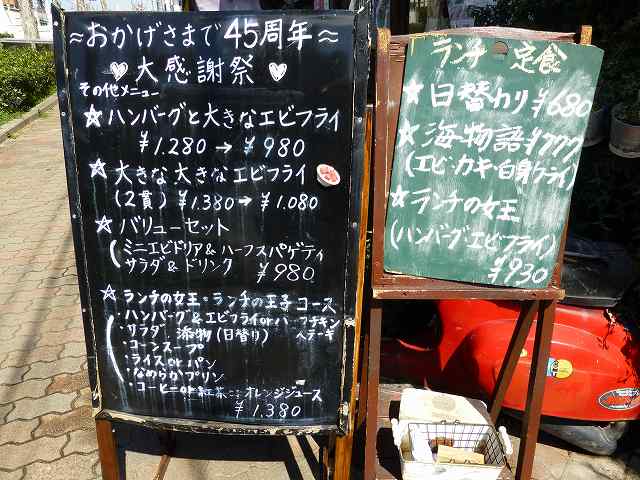 ≈おかげさまで45周年≈
♥大感謝祭♥
その他メニュー
☆ハンバーグと大きなエビフライ
¥1.280→¥980
☆大きな大きなエビフライ
(2貫)¥1.380→¥1.080
☆バリューセット
ミニエビドリア&ハーフスパゲティ
サラダ&ドリンク ¥980
☆ランチの女王・ランチの王子コース
・ハンバーグ&エビフライorハーフチキン
ステーキ
・サラダ 添物(日替り)
・コーンスープ
・ライスorパン
・なめらかプリン
・コーヒーor紅茶 オレンジジュース
¥1.380
ランチ 定食
★日替わり¥680
★海物語¥777
(エビ・カキ・白身フライ)
★ランチの女王
(ハンバーグ・エビフライ)
¥930